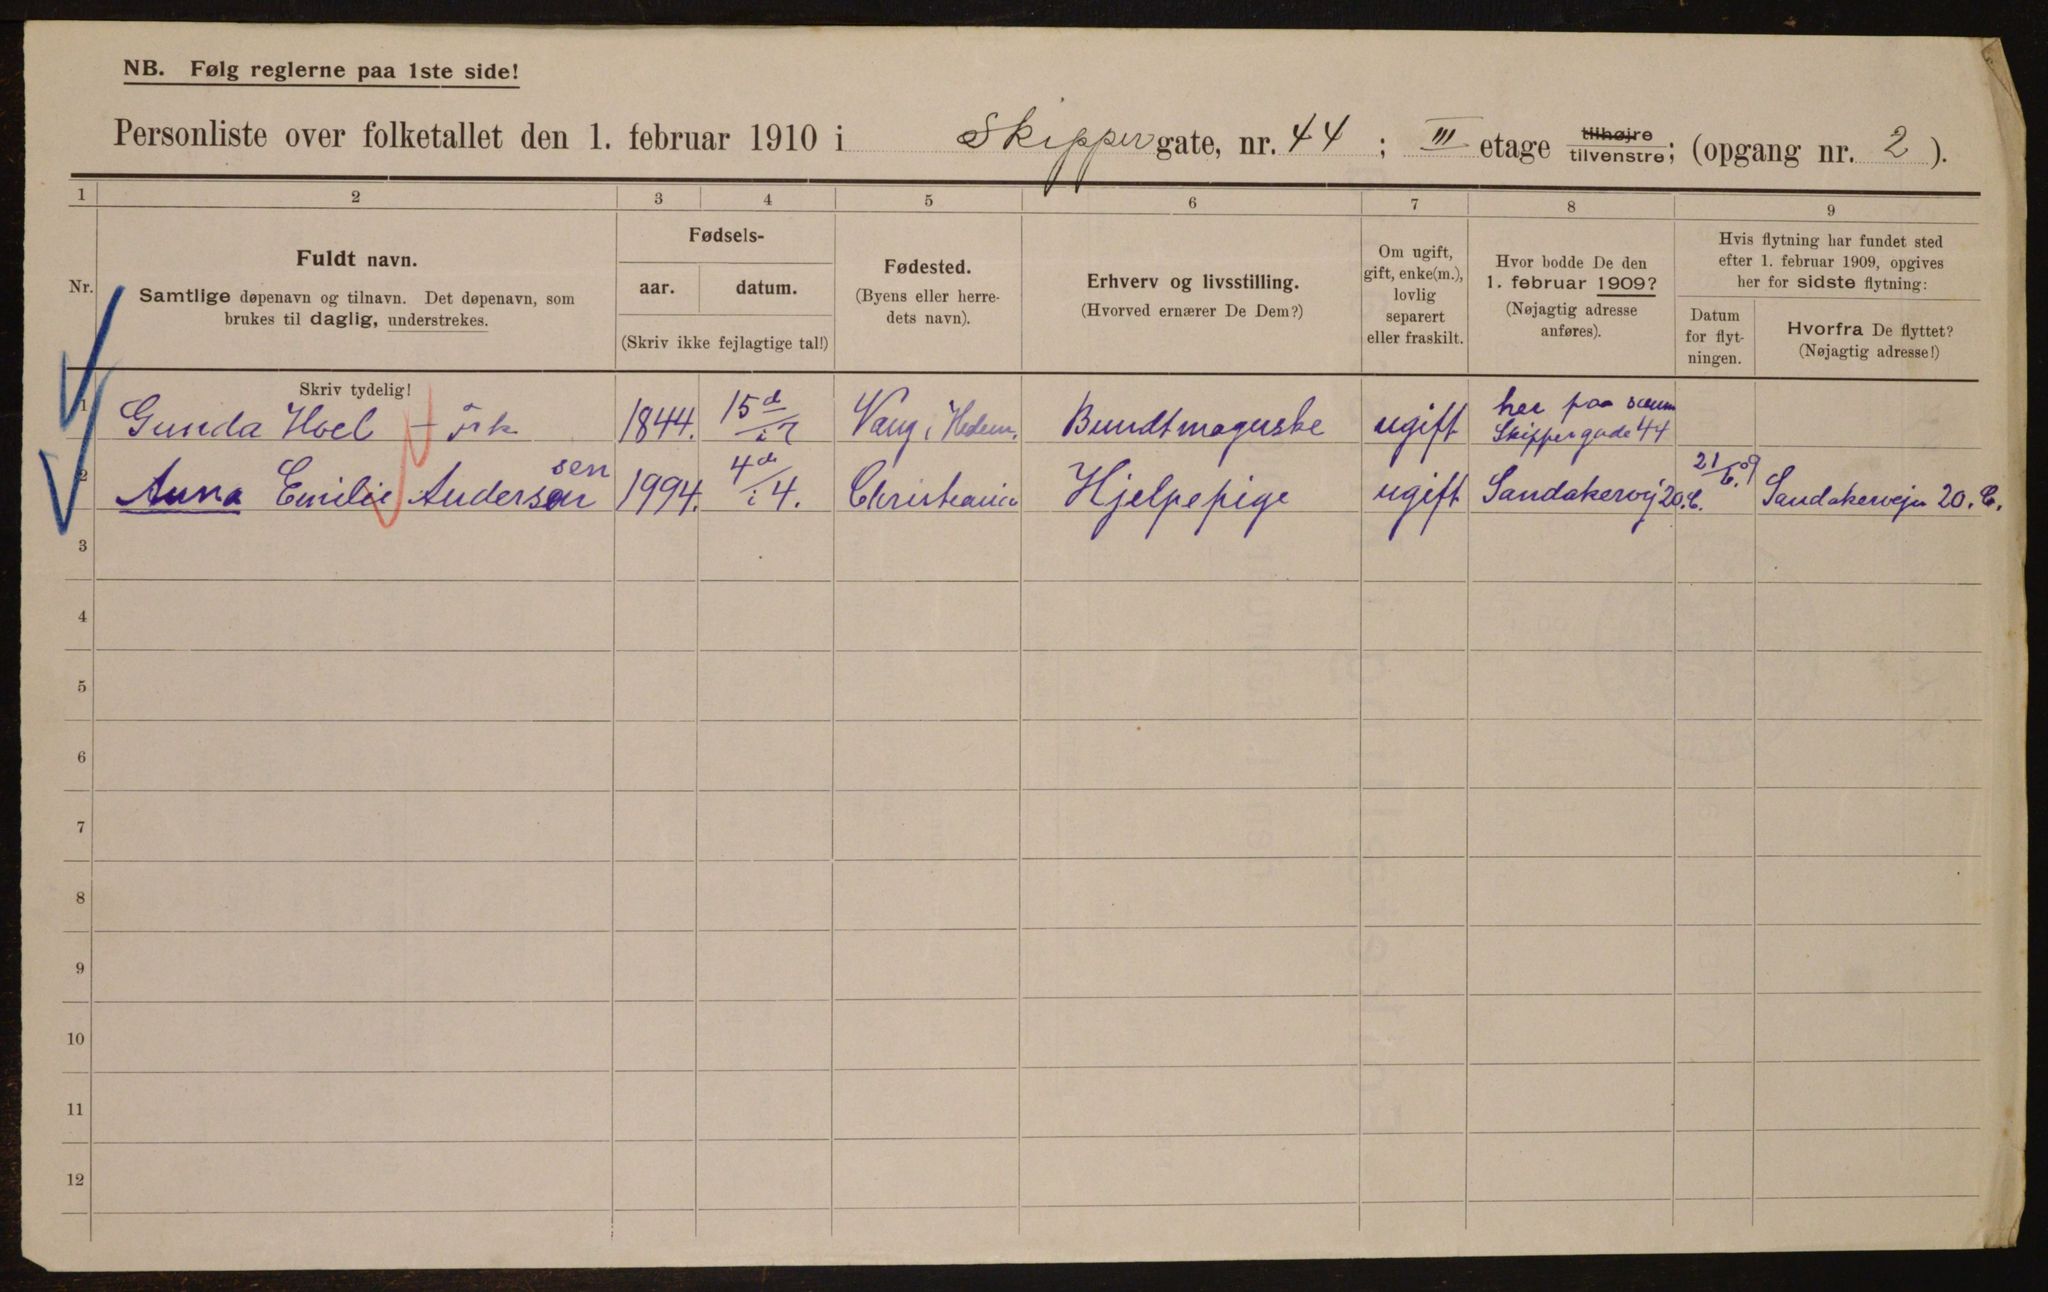 NB. Følg reglerne paa 1ste side!
Personliste over folketallet den 1. februar 1910 i Skippergate, nr. 44; III etage tilhøjre tilvenstre; (opgang nr. 2).
1 2 3 4 5 6 7 8 9
Nr.
Fuldt navn.
Samtlige døpenavn og tilnavn. Det døpenavn, som
brukes til daglig, understrekes.
Skriv tydelig!
Fødsels-
aar. datum.
(Skriv ikke fejlagtige tal!)
Fødested.
(Byens eller herre-
dets navn).
Erhverv og livsstilling.
(Hvorved ernærer De Dem?)
Om ugift,
gift, enke(m.),
lovlig
separert
eller fraskilt.
Hvor bodde De den
1. februar 1909?
(Nøjagtig adresse
anføres).
Hvis flytning har fundet sted
efter 1. februar 1909, opgives
her for sidste flytning:
Datum
for flyt-
ningen.
Hvorfra De flyttet?
(Nøjagtig adresse!)
1 Gunda Hoel 1844. 15d/i Vang i Hedem. Bundtmagerske ugift her paa samm Skippergade 44
2 Anna Emilie Andersen sen 1994. 4de/i 4. Christiania Hjelpepige ugift Sandakervej 20.C. 21/6.09 Sandakervejen 20. C.
3
4
5
6
7
8
9
10
11
12